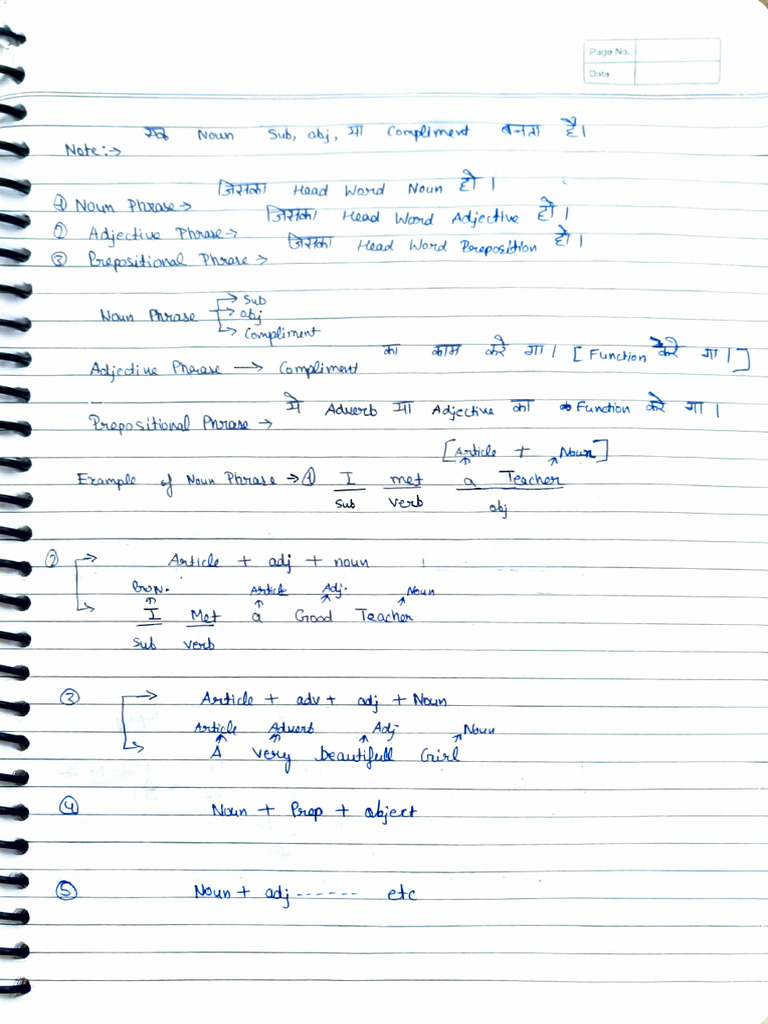 Page No.
Date
Note:→ एक Noun Sub, obj, या Compliment बनता है।
① Noun Phrase→ जिसका Head Word Noun हो।
② Adjective Phrase→ जिसका Head Word Adjective हो।
③ Prepositional Phrase→ जिसका Head Word Preposition हो।
Noun Phrase → Sub
→ obj
→ Compliment
Adjective Phrase → Compliment का काम करे गा। [Function करे गा।]
Prepositional Phrase → ये Adverb या Adjective का Function करे गा।
[Article + Noun]
Example of Noun Phrase → ① I met a Teacher
sub verb obj
② → Article + adj + noun
Article Adj. Noun
→ I Met a Good Teacher
sub verb
③ → Article + adv + adj + Noun
Article Adverb Adj Noun
→ A very beautifull Girl
④ Noun + Prep + object
⑤ Noun + adj ------ etc